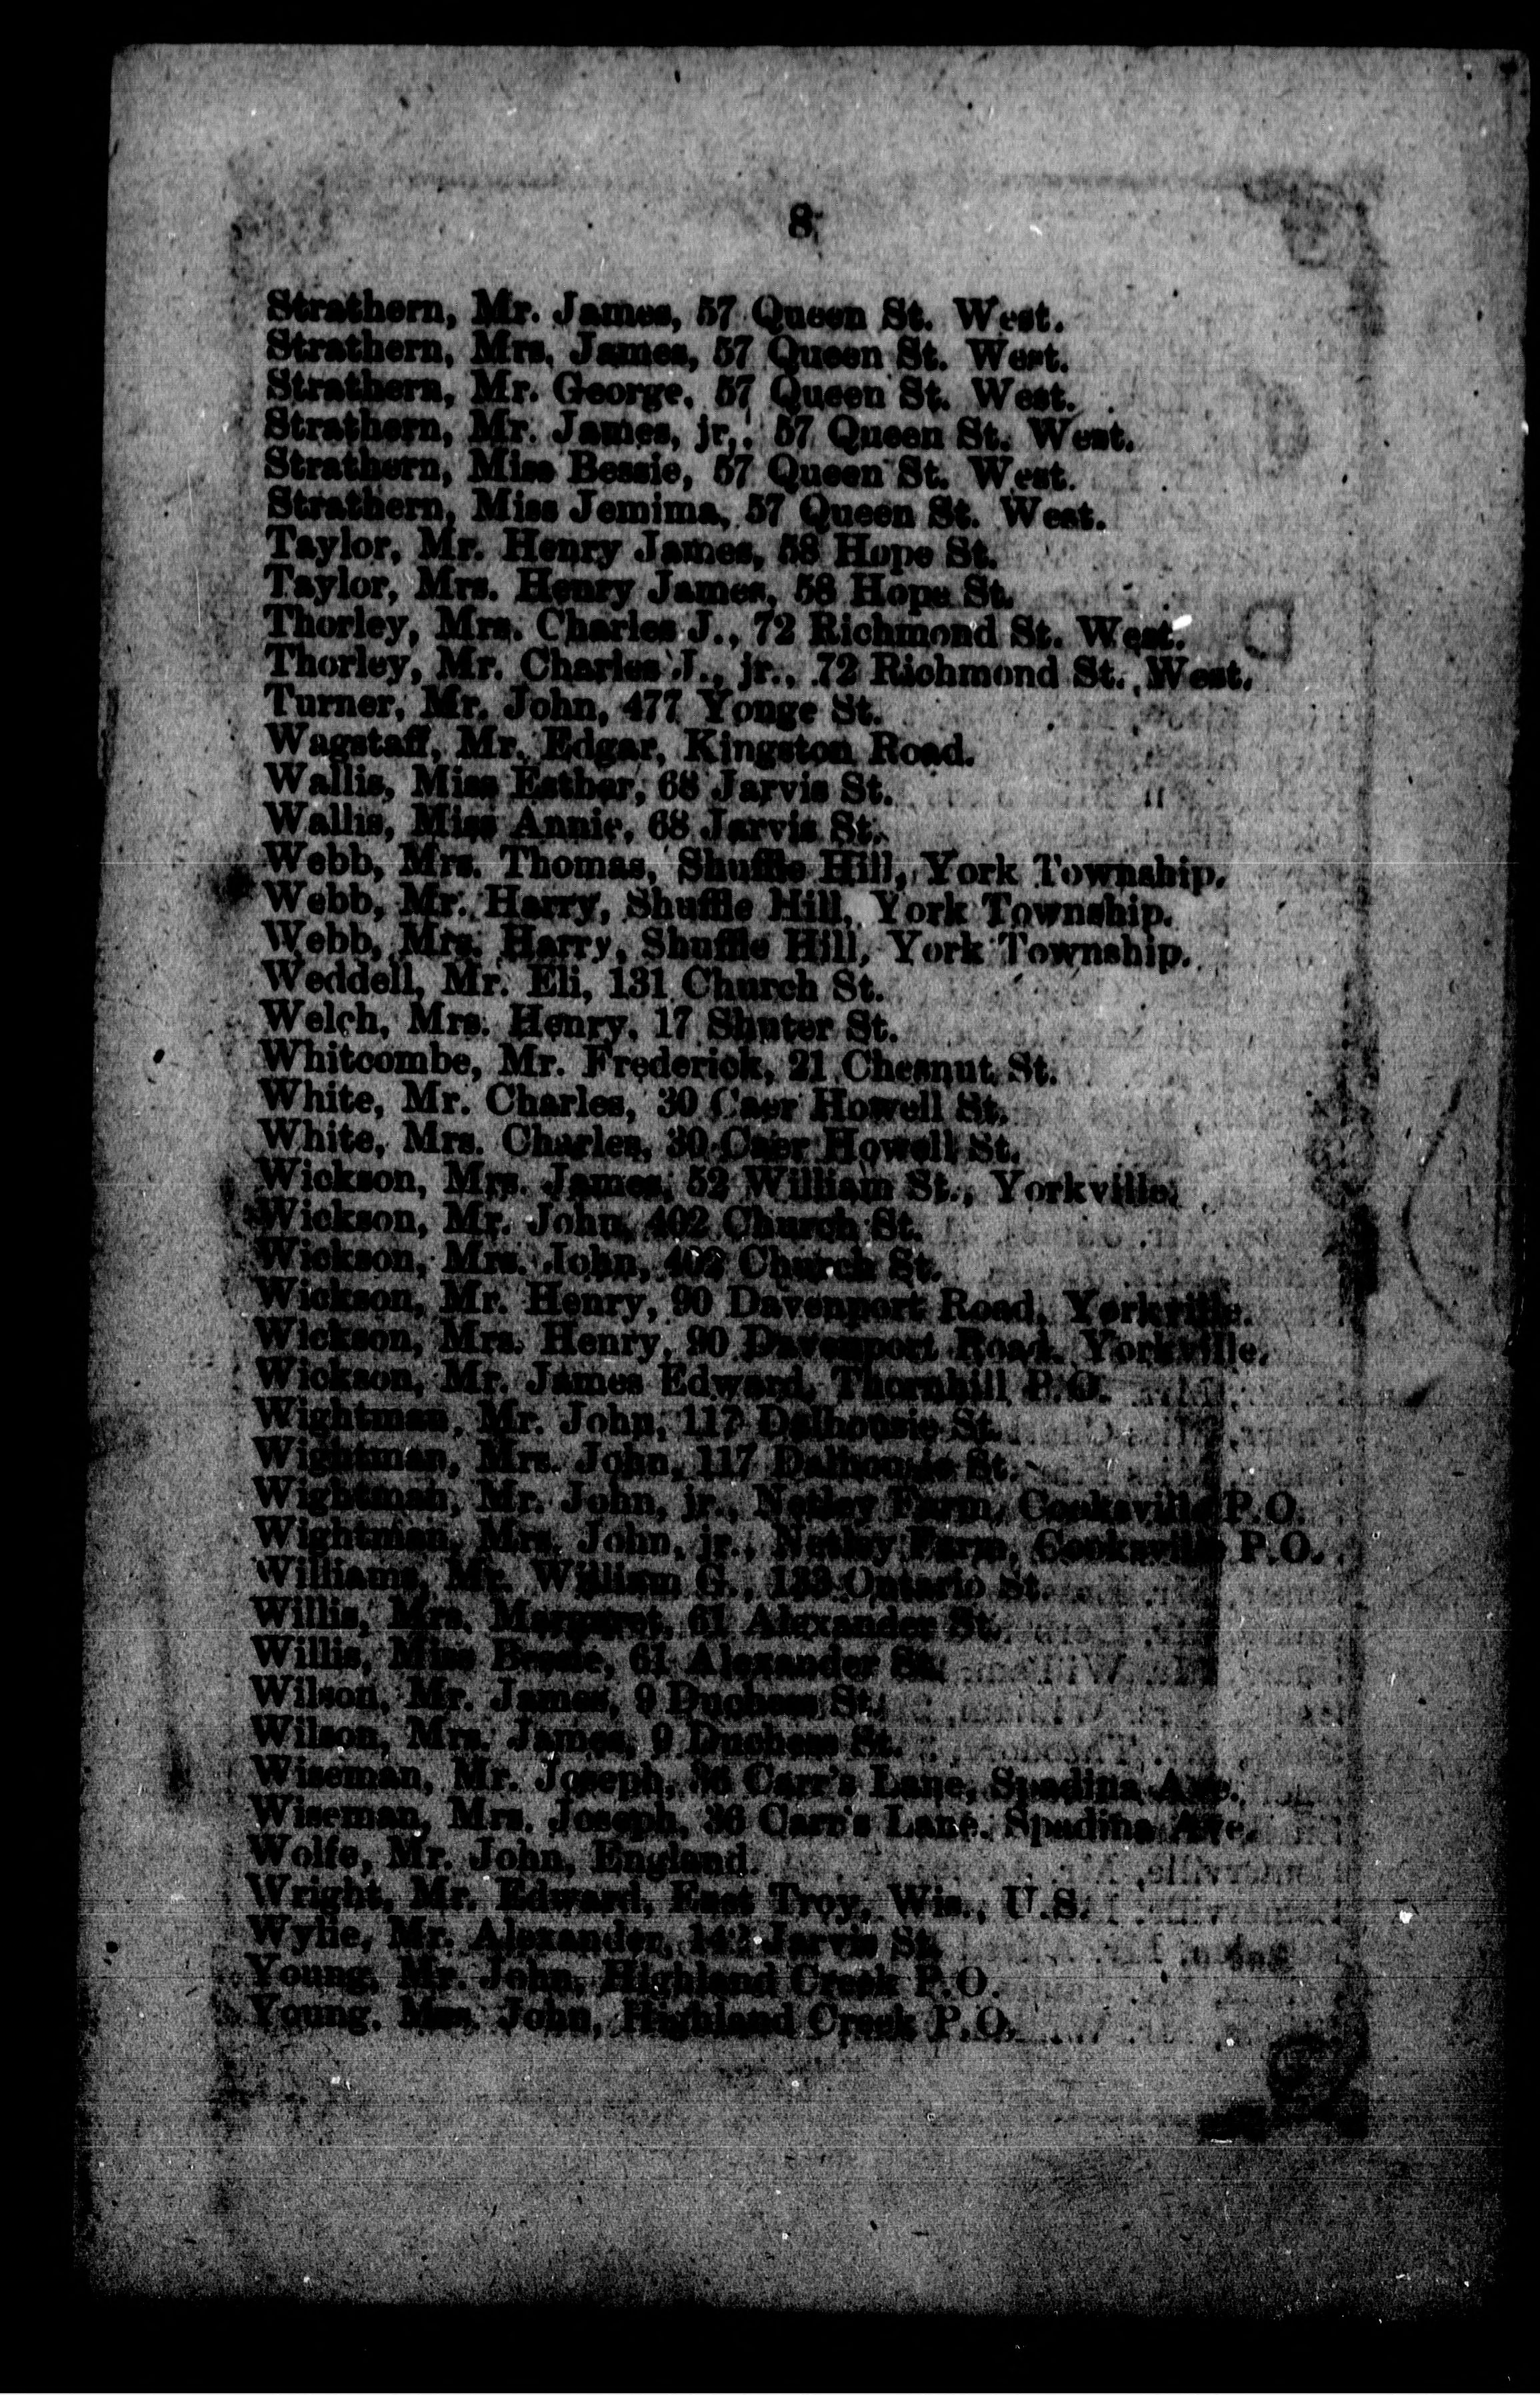 8
Strathern, Mr. James, 57 Queen St. West.
Strathern, Mrs. James, 57 Queen St. West.
Strathern, Mr. George, 57 Queen St. West.
Strathern, Mr. James, jr., 57 Queen St. West.
Strathern, Miss Bessie, 57 Queen St. West.
Strathern, Miss Jemima, 57 Queen St. West.
Taylor, Mr. Henry James, 58 Hope St.
Taylor, Mrs. Henry James, 58 Hope St.
Thorley, Mrs. Charles J., 72 Richmond St. West.
Thorley, Mr. Charles J., jr., 72 Richmond St. West.
Turner, Mr. John, 477 Yonge St.
Wagstaff, Mr. Edgar, Kingston Road.
Wallis, Miss Esther, 68 Jarvis St.
Wallis, Miss Annie, 68 Jarvis St.
Webb, Mrs. Thomas, Shuffle Hill, York Township.
Webb, Mr. Harry, Shuffle Hill, York Township.
Webb, Mrs. Harry, Shuffle Hill, York Township.
Weddell, Mr. Eli, 131 Church St.
Welch, Mrs. Henry, 17 Shuter St.
Whitcombe, Mr. Frederick, 21 Chesnut St.
White, Mr. Charles, 30 Caer Howell St.
White, Mrs. Charles, 30 Caer Howell St.
Wickson, Mrs. James, 52 William St., Yorkville.
Wickson, Mr. John, 402 Church St.
Wickson, Mrs. John, 402 Church St.
Wickson, Mr. Henry, 90 Davenport Road, Yorkville.
Wickson, Mrs. Henry, 90 Davenport Road, Yorkville.
Wickson, Mr. James Edward, Thornhill P.O.
Wightman, Mr. John, 117 Dalhousie St.
Wightman, Mrs. John, 117 Dalhousie St.
Wightman, Mr. John, jr., Netley Farm, Cooksville P.O.
Wightman, Mrs. John, jr., Netley Farm, Cooksville P.O.
Williams, Mr. William G., 133 Ontario St.
Willis, Mrs. Margaret, 61 Alexander St.
Willis, Miss 61 Alexander St.
Wilson, Mr. James, 9 Duchess St.
Wilson, Mrs. James, 9 Duchess St.
Wiseman, Mr. Joseph, 36 Carr's Lane, Spadina Ave.
Wiseman, Mrs. Joseph, 36 Carr's Lane, Spadina Ave.
Wolfe, Mr. John, England.
Wright, Mr. Edward, East Troy, Wis., U.S.
Wylie, Mr. Alexander, 142 Jarvis St.
Young, Mr. John, Highland Creek P.O.
Young, Mrs. John, Highland Creek P.O.